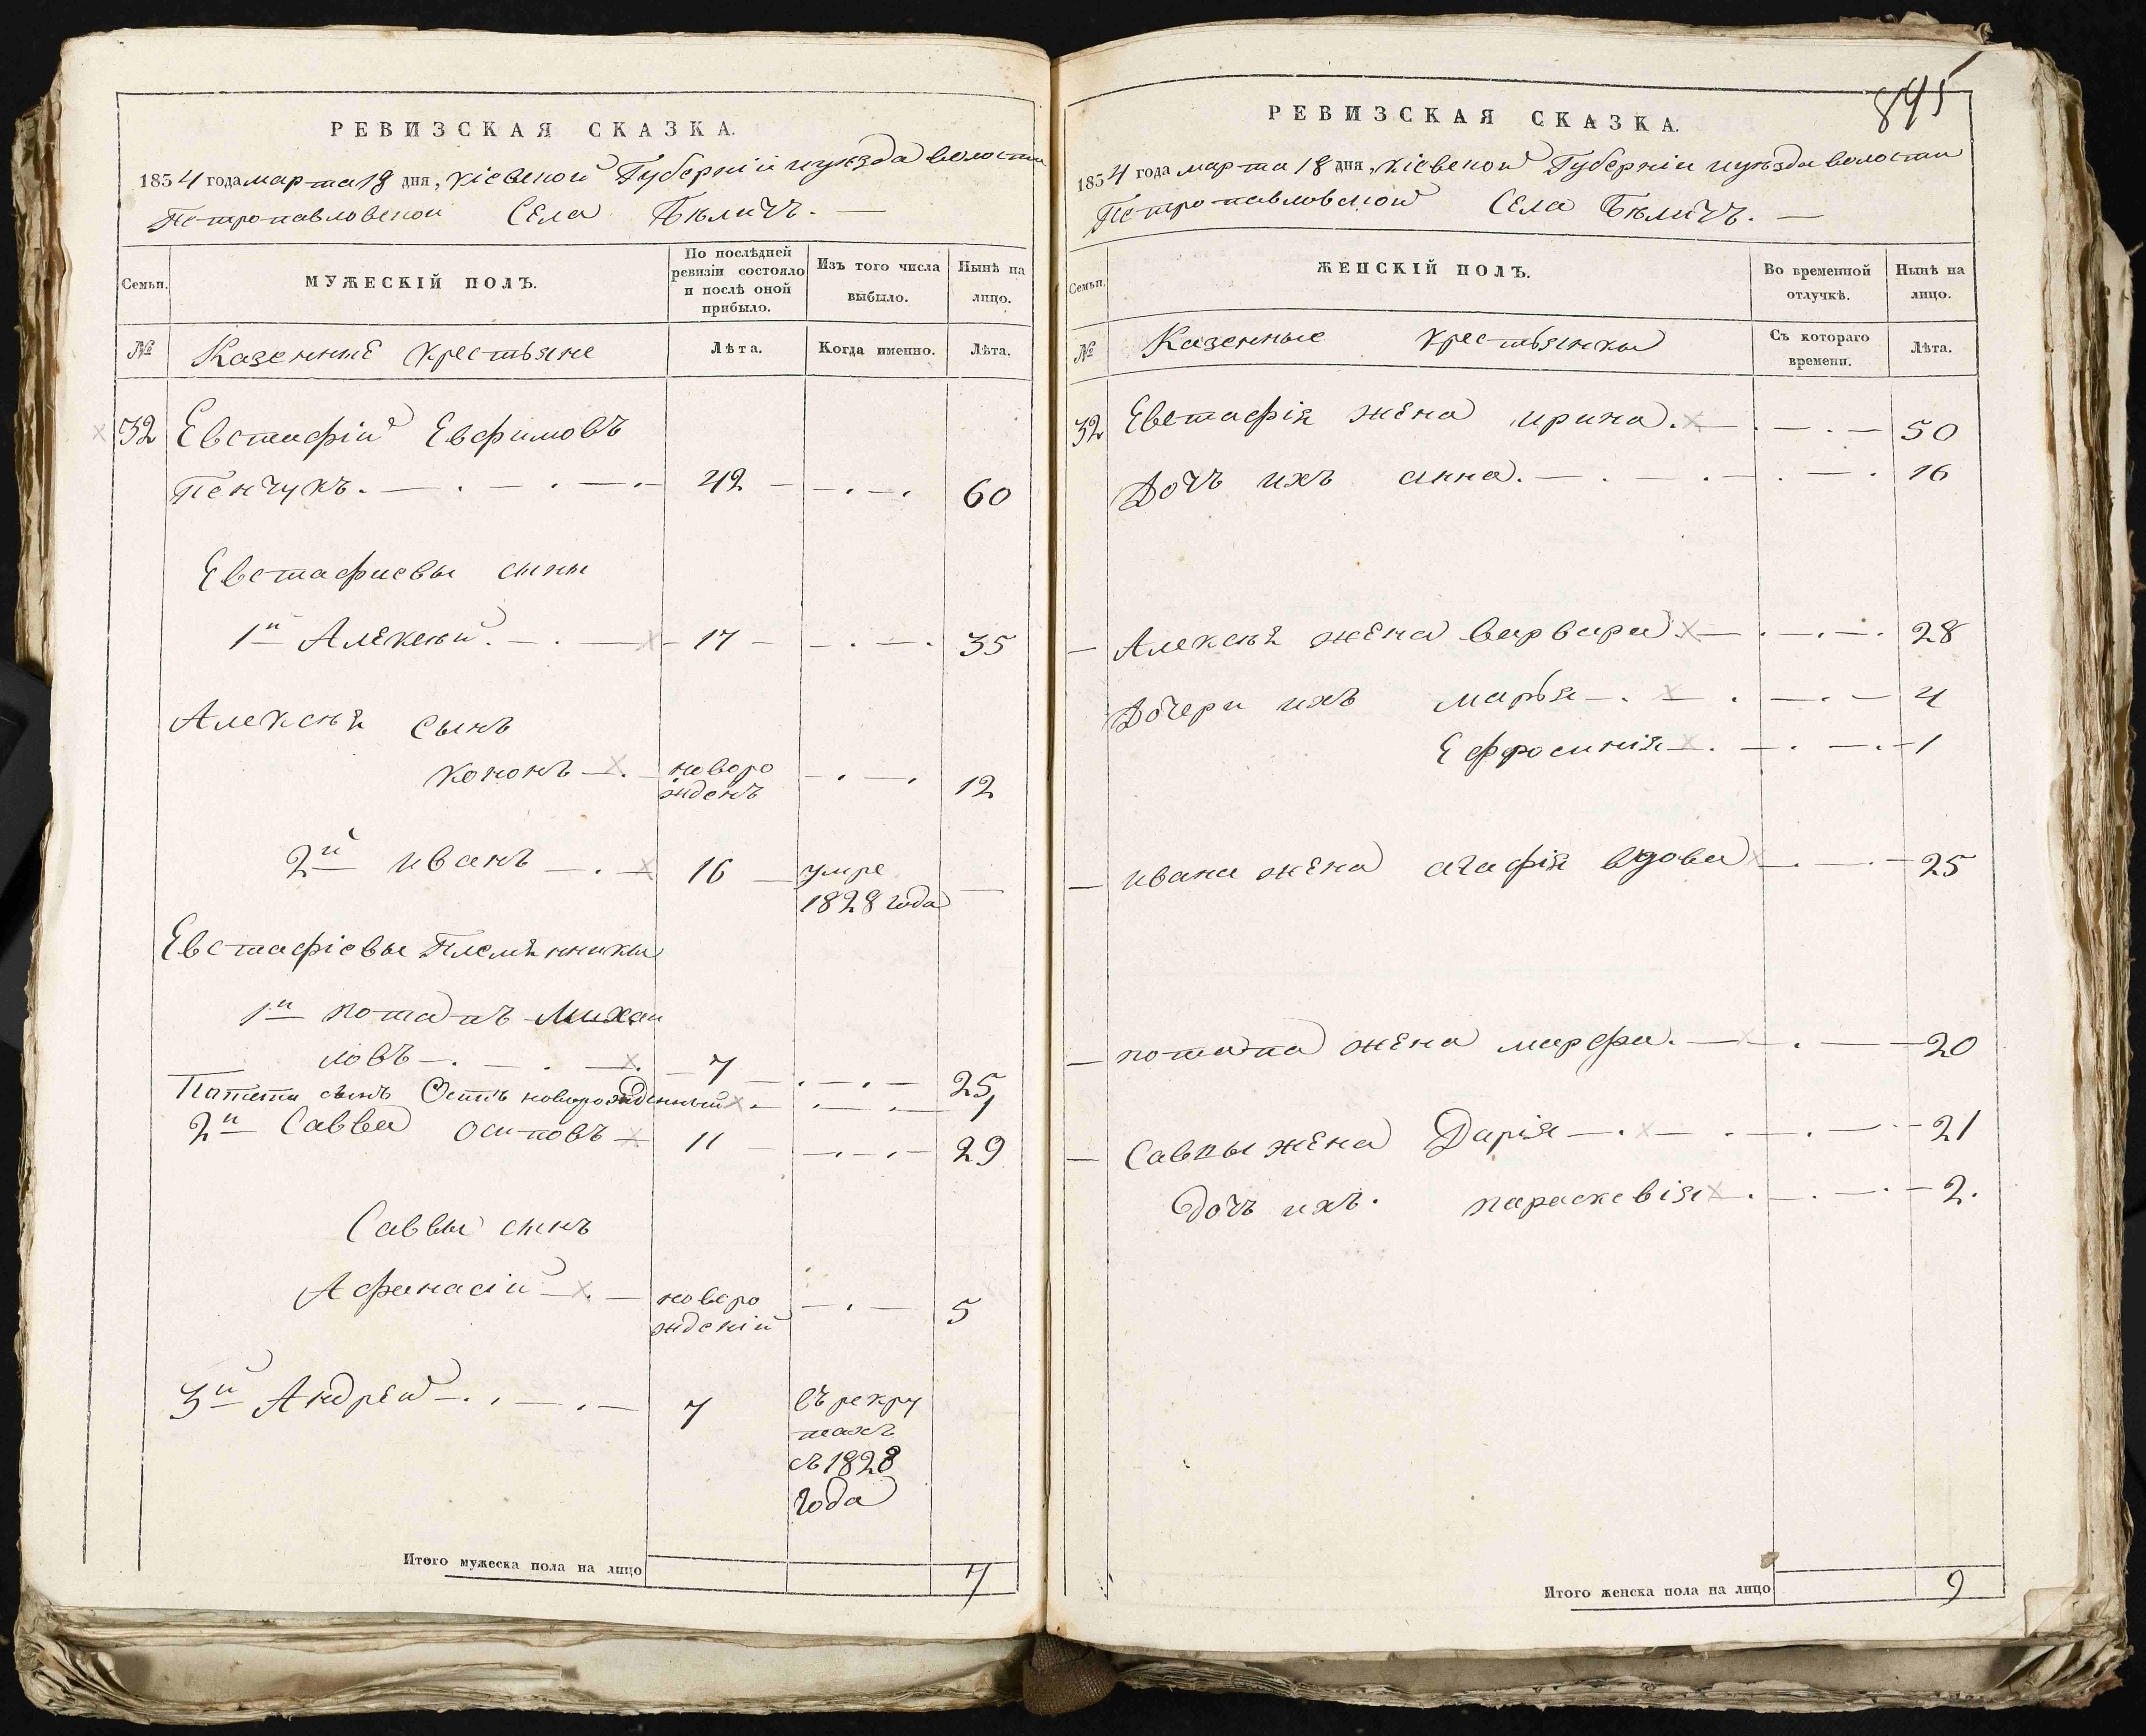 РЕВИЗСКАЯ СКАЗКА.
1834 года марта 18 дня, Кіевской Губерніи и уезда волости
Петропавловской Села Бѣличъ. —
Семьи.
МУЖЕСКІЙ ПОЛЪ.
По послѣдней ревизіи состояло и послѣ оной прибыло.
Изъ того числа выбыло.
Нынѣ на лицо.
№
Казенные Крестьяне
Лѣта.
Когда именно.
Лѣта.
32 Евстафій Евфимовъ
Пенчукъ. 42 60
Евстафиевы сыны
1й Алексѣй. 17 35
Алексѣя сынъ
кононъ новоро
жденъ 12
2й иванъ 16 умре
1828 года
Евстафіевы Племянники
1й потапъ Михаи
ловъ 7 25
Патапа сынъ Осипъ новорожденный 1
2й Савва осиповъ 11 29
Саввы сынъ
Афанасій новоро
жденій 5
3й Андрей 7 въ рекру
тахъ
съ 1828
года
Итого мужеска пола на лицо 7
845
РЕВИЗСКАЯ СКАЗКА.
1834 года марта 18 дня, Кіевской Губерніи и уѣзда волости
Петропавловской Села Бѣличъ. —
Семьи.
ЖЕНСКІЙ ПОЛЪ.
Во временной отлучкѣ.
Нынѣ на лицо.
№
Казенные крестьянки
Съ котораго времени.
Лѣта.
32 Евстафія жена ирина. 50
Дочь ихъ анна. 16
Алексѣя жена варвара 28
Дочери ихъ марья 4
Ефросинія 1
ивана жена агафія вдова 25
потапа жена марфа. 20
Саввы жена Дарія 21
дочь ихъ. параскевія 2.
Итого женска пола на лицо 9